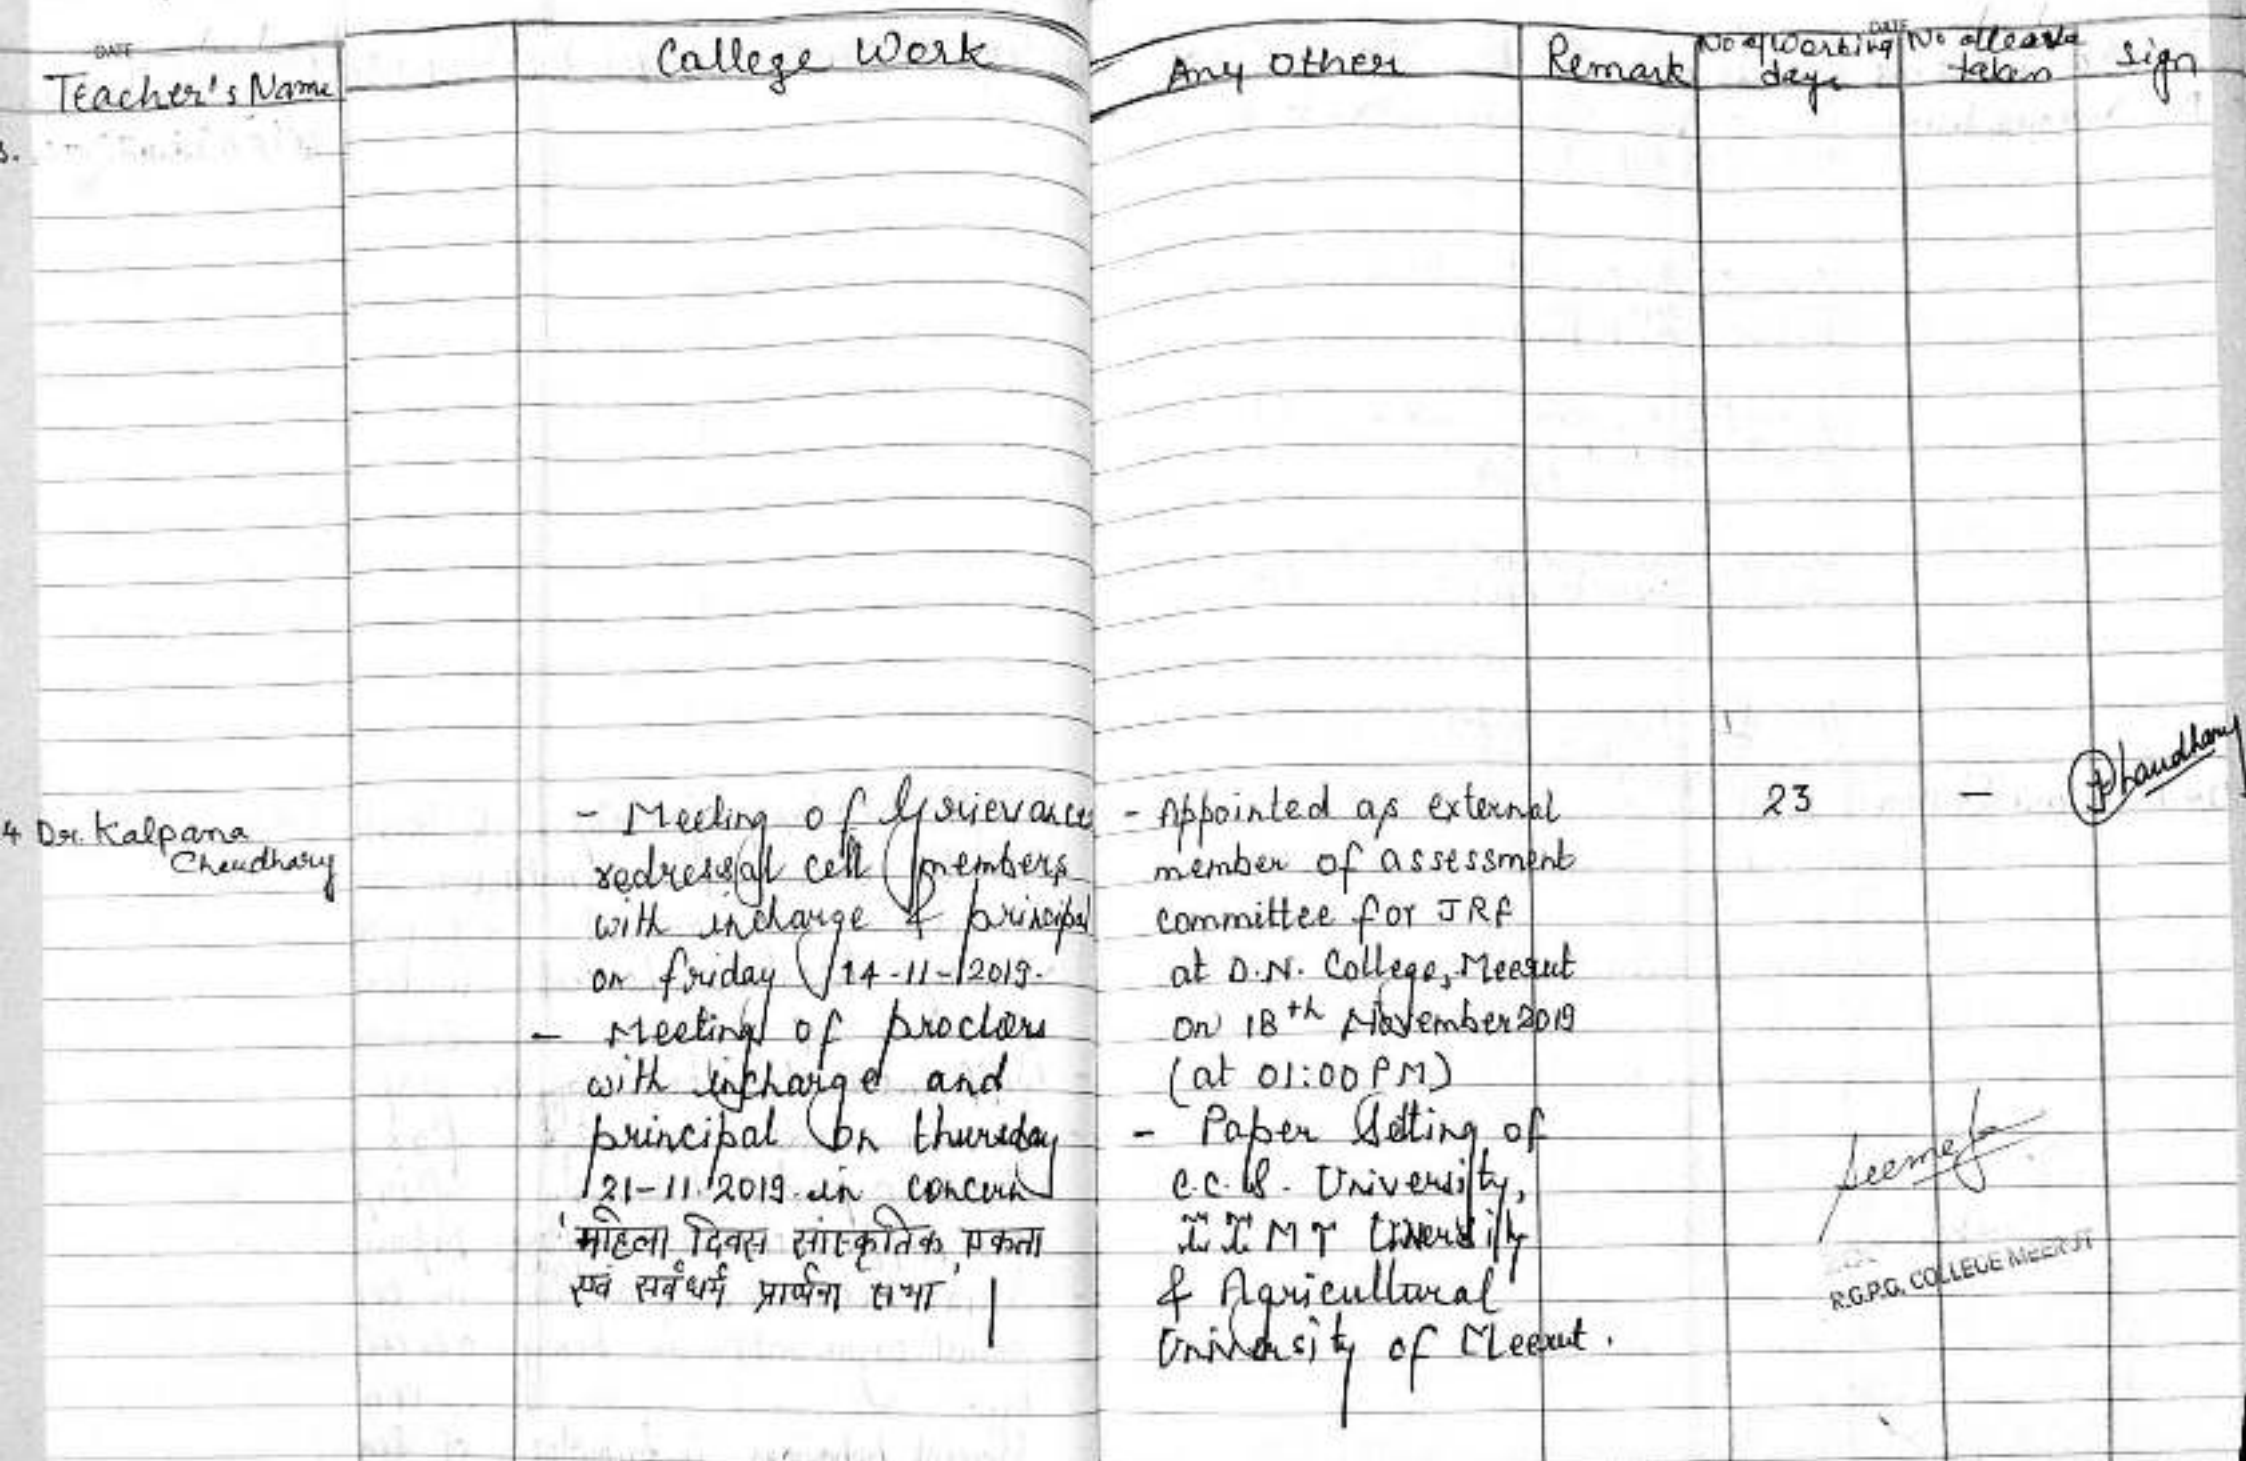 DATE
Teacher's Name
College Work
Any Other
Remark
DATE
No of Working days
No of leave taken
Sign
3.
4 Dr. Kalpana
Chaudhary
- Meeting of Grievance
redressal cell members
with incharge & principal
on friday 14-11-2019.
- Meeting of proctors
with incharge and
principal on thursday
21-11-2019 in concern
'महिला दिवस सांस्कृतिक एकता
एवं सर्वधर्म प्रार्थना सभा' |
- Appointed as external
member of assessment
committee for JRF
at D.N. College, Meerut
on 18th November 2019
(at 01:00 PM)
- Paper Setting of
C.C.S. University,
IIMT University
& Agricultural
University of Meerut.
23
—
Chaudhary
R.G.P.G. COLLEGE MEERUT